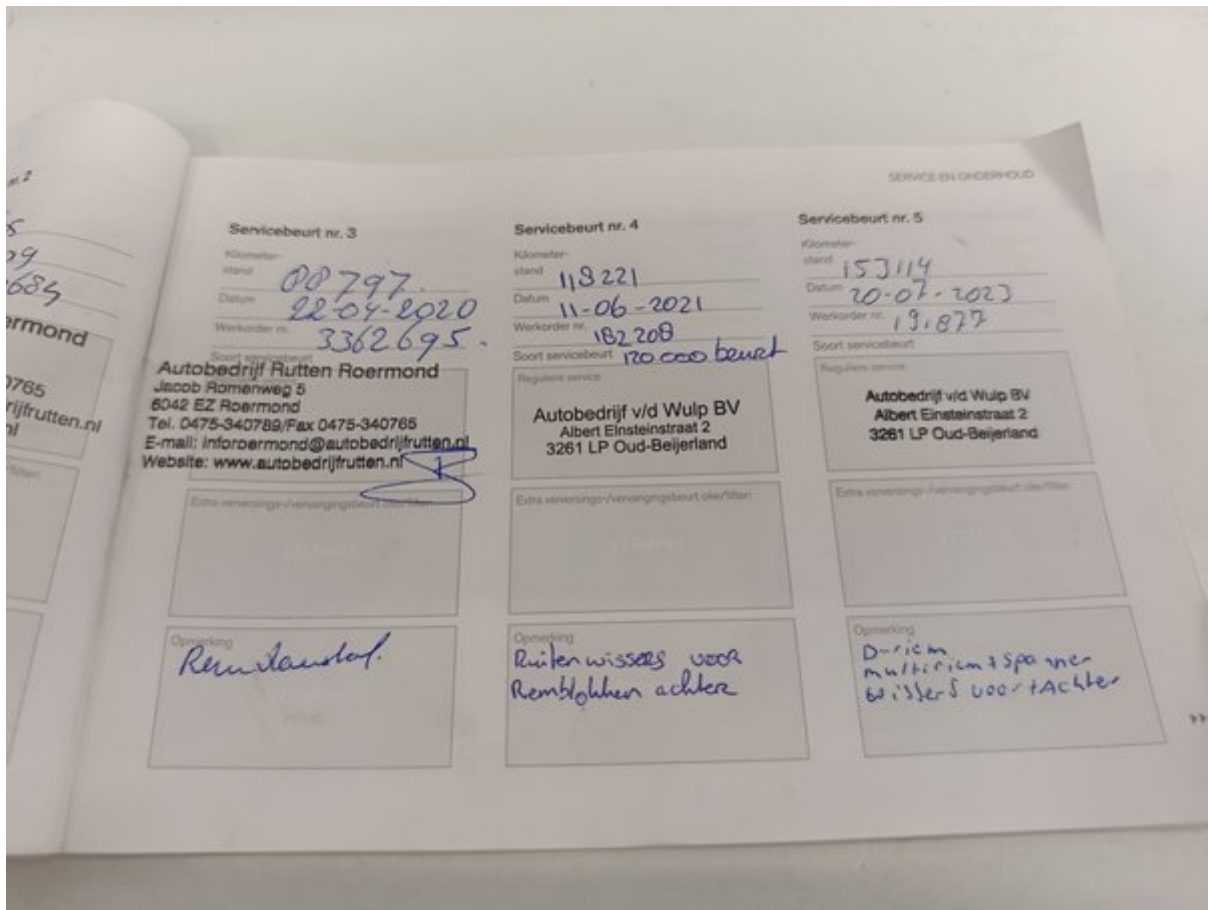 nr. 2
09
684
ermond
0765
rijfrutten.nl
nl
SERVICE EN ONDERHOUD
Servicebeurt nr. 3
Kilometer-
stand 88797.
Datum 22-04-2020
Werkorder nr. 3362695.
Soort servicebeurt
Autobedrijf Rutten Roermond
Jacob Romenweg 5
6042 EZ Roermond
Tel. 0475-340789/Fax 0475-340765
E-mail: inforoermond@autobedrijfrutten.nl
Website: www.autobedrijfrutten.nl
Extra verversings-/vervangingsbeurt olie/filter:
STEMPEL
Opmerking
Servicebeurt nr. 4
Kilometer-
stand 118221
Datum 11-06-2021
Werkorder nr. 182208
Soort servicebeurt 120.000 beurt
Reguliere service
Autobedrijf v/d Wulp BV
Albert Einsteinstraat 2
3261 LP Oud-Beijerland
Extra verversings-/vervangingsbeurt olie/filter:
STEMPEL
Opmerking
Ruitenwissers voor
Remblokken achter
Servicebeurt nr. 5
Kilometer-
stand 153114
Datum 20-07-2023
Werkorder nr. 191877
Soort servicebeurt
Reguliere service
Autobedrijf v/d Wulp BV
Albert Einsteinstraat 2
3261 LP Oud-Beijerland
Extra verversings-/vervangingsbeurt olie/filter:
STEMPEL
Opmerking
D-riem
multiriem + spanner
wissers voor + Achter